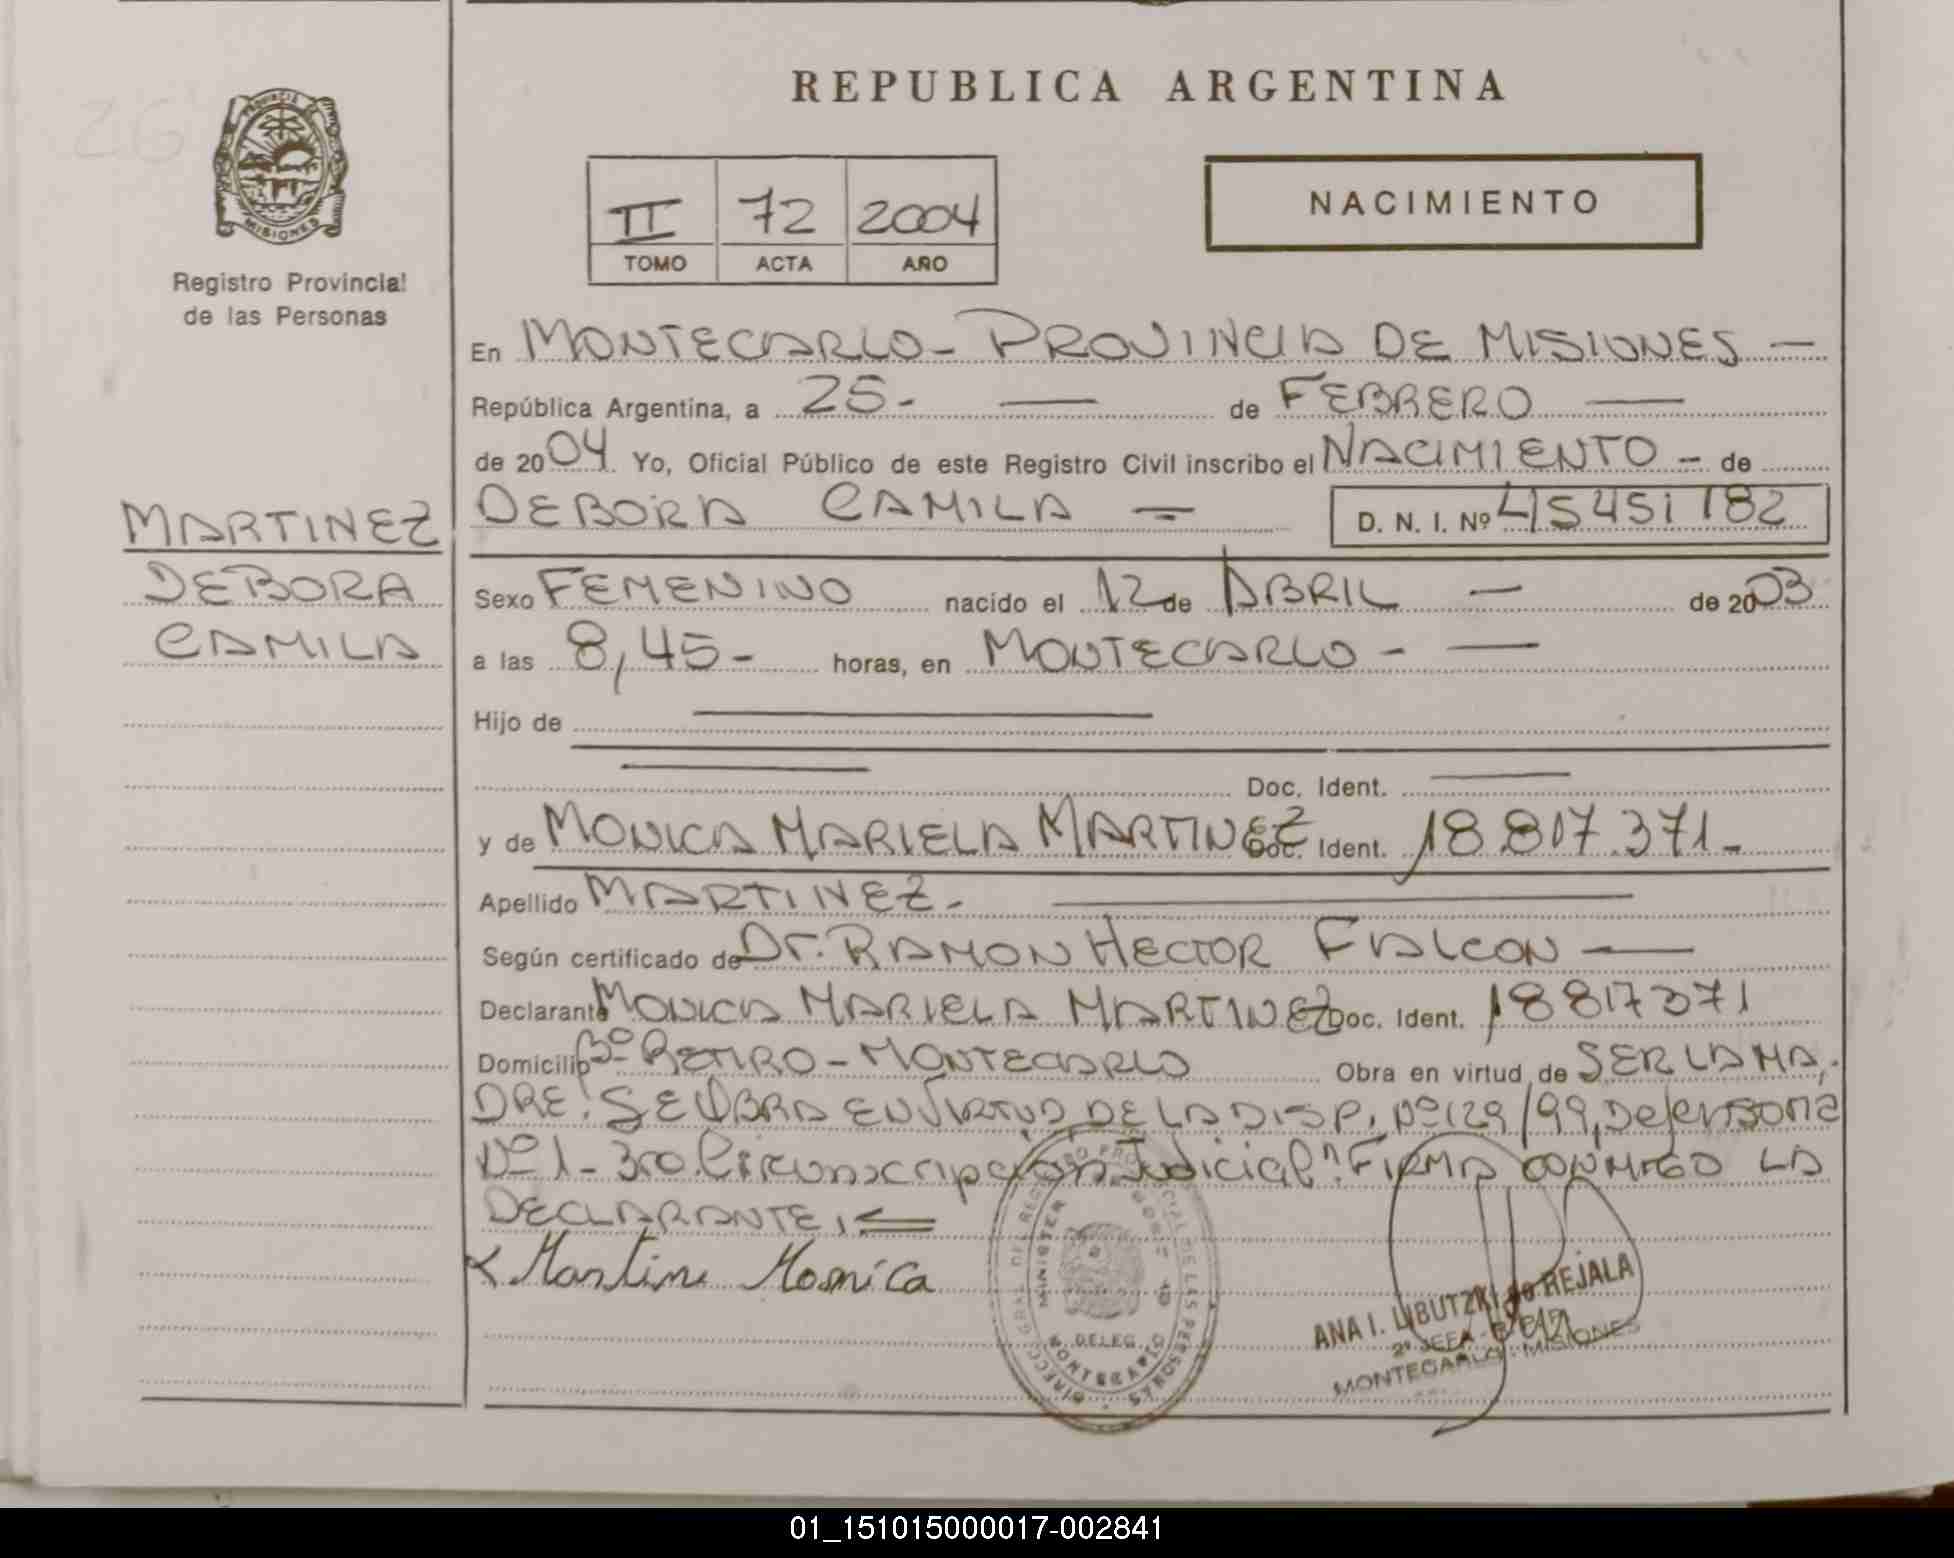 REPUBLICA ARGENTINA
PROVINCIA
MISIONES
Registro Provincial
de las Personas
II 72 2004
TOMO ACTA AÑO
NACIMIENTO
En MONTECARLO - PROVINCIA DE MISIONES —
República Argentina, a 25. — de FEBRERO —
de 2004. Yo, Oficial Público de este Registro Civil inscribo el NACIMIENTO - de
DEBORA CAMILA — D. N. I. Nº 45451182
MARTINEZ
DEBORA
CAMILA
Sexo FEMENINO nacido el 12 de ABRIL — de 2003
a las 8,45- horas, en MONTECARLO - —
Hijo de —
— Doc. Ident. —
y de MONICA MARIELA MARTINEZ Doc. Ident. 18.817.371.-
Apellido MARTINEZ. —
Según certificado de Dr. RAMON HECTOR FALCON —
Declarante MONICA MARIELA MARTINEZ Doc. Ident. 18817371
Domicilio Bº RETIRO - MONTECARLO Obra en virtud de SER LA MA,-
DRE: SE LABRA EN VIRTUD DE LA DISP. Nº 129/99, Defensoria
Nº 1 - 3ra. Circunscripción Judicial". FIRMA CONMIGO LA
DECLARANTE,
x Martine Monica
DELEG.
MONTECARLO
ANA I. LIBUTZKI de REJALA
2º JEFA
MONTECARLO - MISIONES
01_151015000017-002841